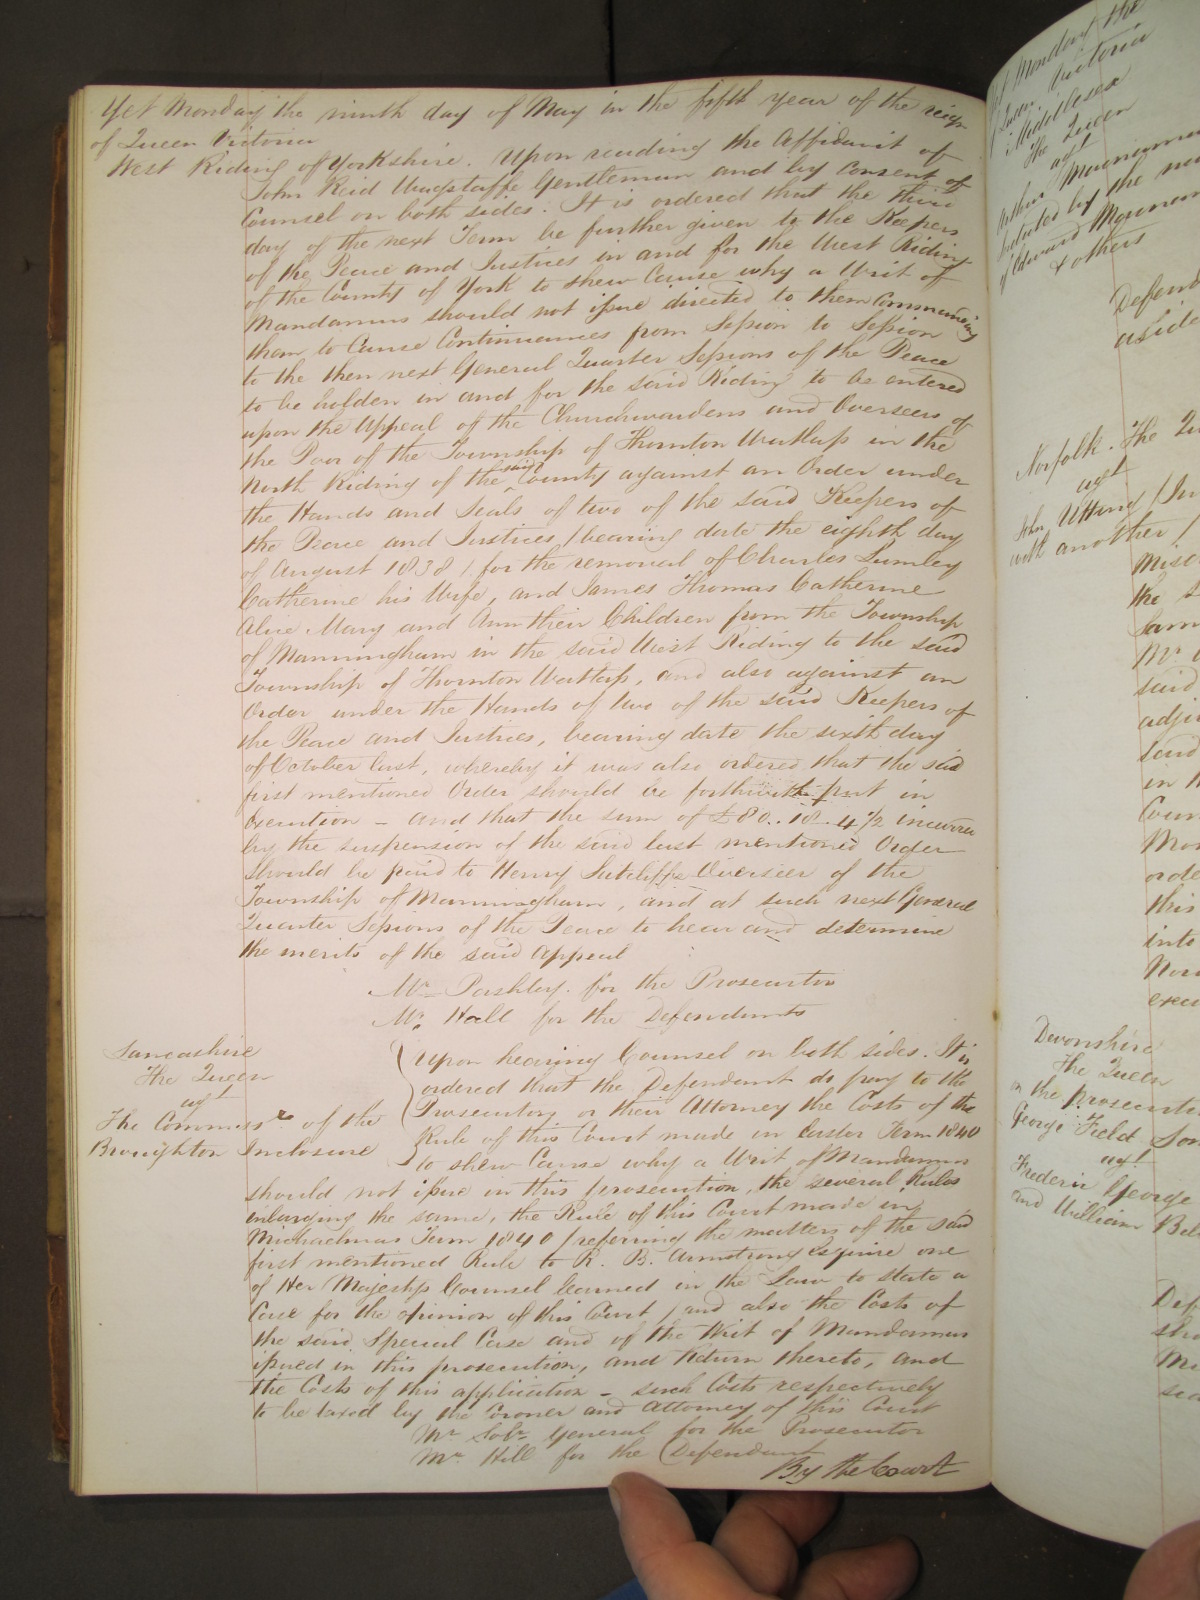 Yet Monday the ninth day of May in the fifth year of the reign
of Queen Victoria
West Riding of Yorkshire. Upon reading the Affidavit of
John Reid Wagstaffe Gentleman and by consent of
Counsel on both sides. It is ordered that the third
day of the next Term be further given to the Keepers
of the Peace and Justices in and for the West Riding
of the County of York to shew Cause why a Writ of
Mandamus should not issue directed to them Commanding
them to Cause Continuances from Session to Session
to the then next General Quarter Sessions of the Peace
to be holden in and for the said Riding to be entered
upon the Appeal of the Churchwardens and Overseers of
the Poor of the Township of Thornton Watlass in the
North Riding of the said County against an Order under
the Hands and Seals of two of the said Keepers of
the Peace and Justices /bearing date the eighth day
of August 1838/ for the removal of Charles Lumley
Catherine his Wife, and James Thomas Catherine
Alice Mary and Ann their Children from the Township
of Manningham in the said West Riding to the said
Township of Thornton Watlass, and also against an
Order under the Hands of two of the said Keepers of
the Peace and Justices, bearing date the sixth day
of October last, whereby it was also ordered that the said
first mentioned Order should be forthwith put in
Execution – and that the sum of £80..18..4 1/2 incurred
by the suspension of the said last mentioned Order
should be paid to Henry Sutcliffe Overseer of the
Township of Manningham, and at such next General
Quarter Sessions of the Peace to hear and determine
the merits of the said Appeal
Mr Pashley for the Prosecutor
Mr Hall for the Defendants
Lancashire
The Queen
agt
The Commissrs of the
Broughton Inclosure
Upon hearing Counsel on both sides. It is
ordered that the Defendant do pay to the
Prosecutors or their Attorney the Costs of the
Rule of this Court made in Easter Term 1840
to shew Cause why a Writ of Mandamus
should not issue in this prosecution, the several Rules
enlarging the same, the Rule of this Court made in
Michaelmas Term 1840 /referring the matters of the said
first mentioned Rule to R. B. Armstrong Esquire one
of Her Majestys Counsel learned in the Law to state a
Case for the opinion of this Court/ and also the Costs of
the said Special Case and of the Writ of Mandamus
issued in this prosecution, and Return thereto, and
the Costs of this application – such Costs respectively
to be taxed by the Coroner and Attorney of this Court
Mr Solr General for the Prosecutor
Mr Hill for the Defendant
By the Court
of Monday the
Victoria
Middlesex
The Queen
agt
by the
Edward
& others
aside
Norfolk. The
agt
John
with another /
the
said
in
this
into
Devonshire
The Queen
on the prosecution
George Field
agt
Frederic George
and William